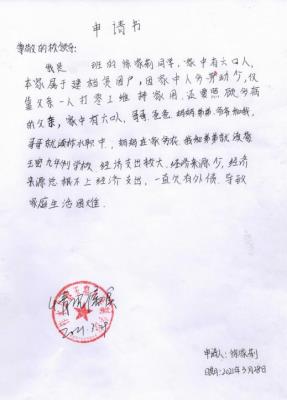 申请书
尊敬的校领导:
我是 班的徐家莉同学,家中有六口人,
本家属于建档贫困户,因家中人多劳动少,仅
靠父亲一人打零工维持家用,还要照顾多病
的父亲,家中有六口人,哥哥,爸爸,妈妈,弟弟,爷爷和我,
哥哥就读 水职中,妈妈在家务农,我和弟弟就读
学校,经济支出较大,经济来源少,经济
来源总根不上经济支出,一直欠有外债,导致
家庭生活困难.
情况属实
2021.
申请人:徐家莉
日期:2021年3月28日